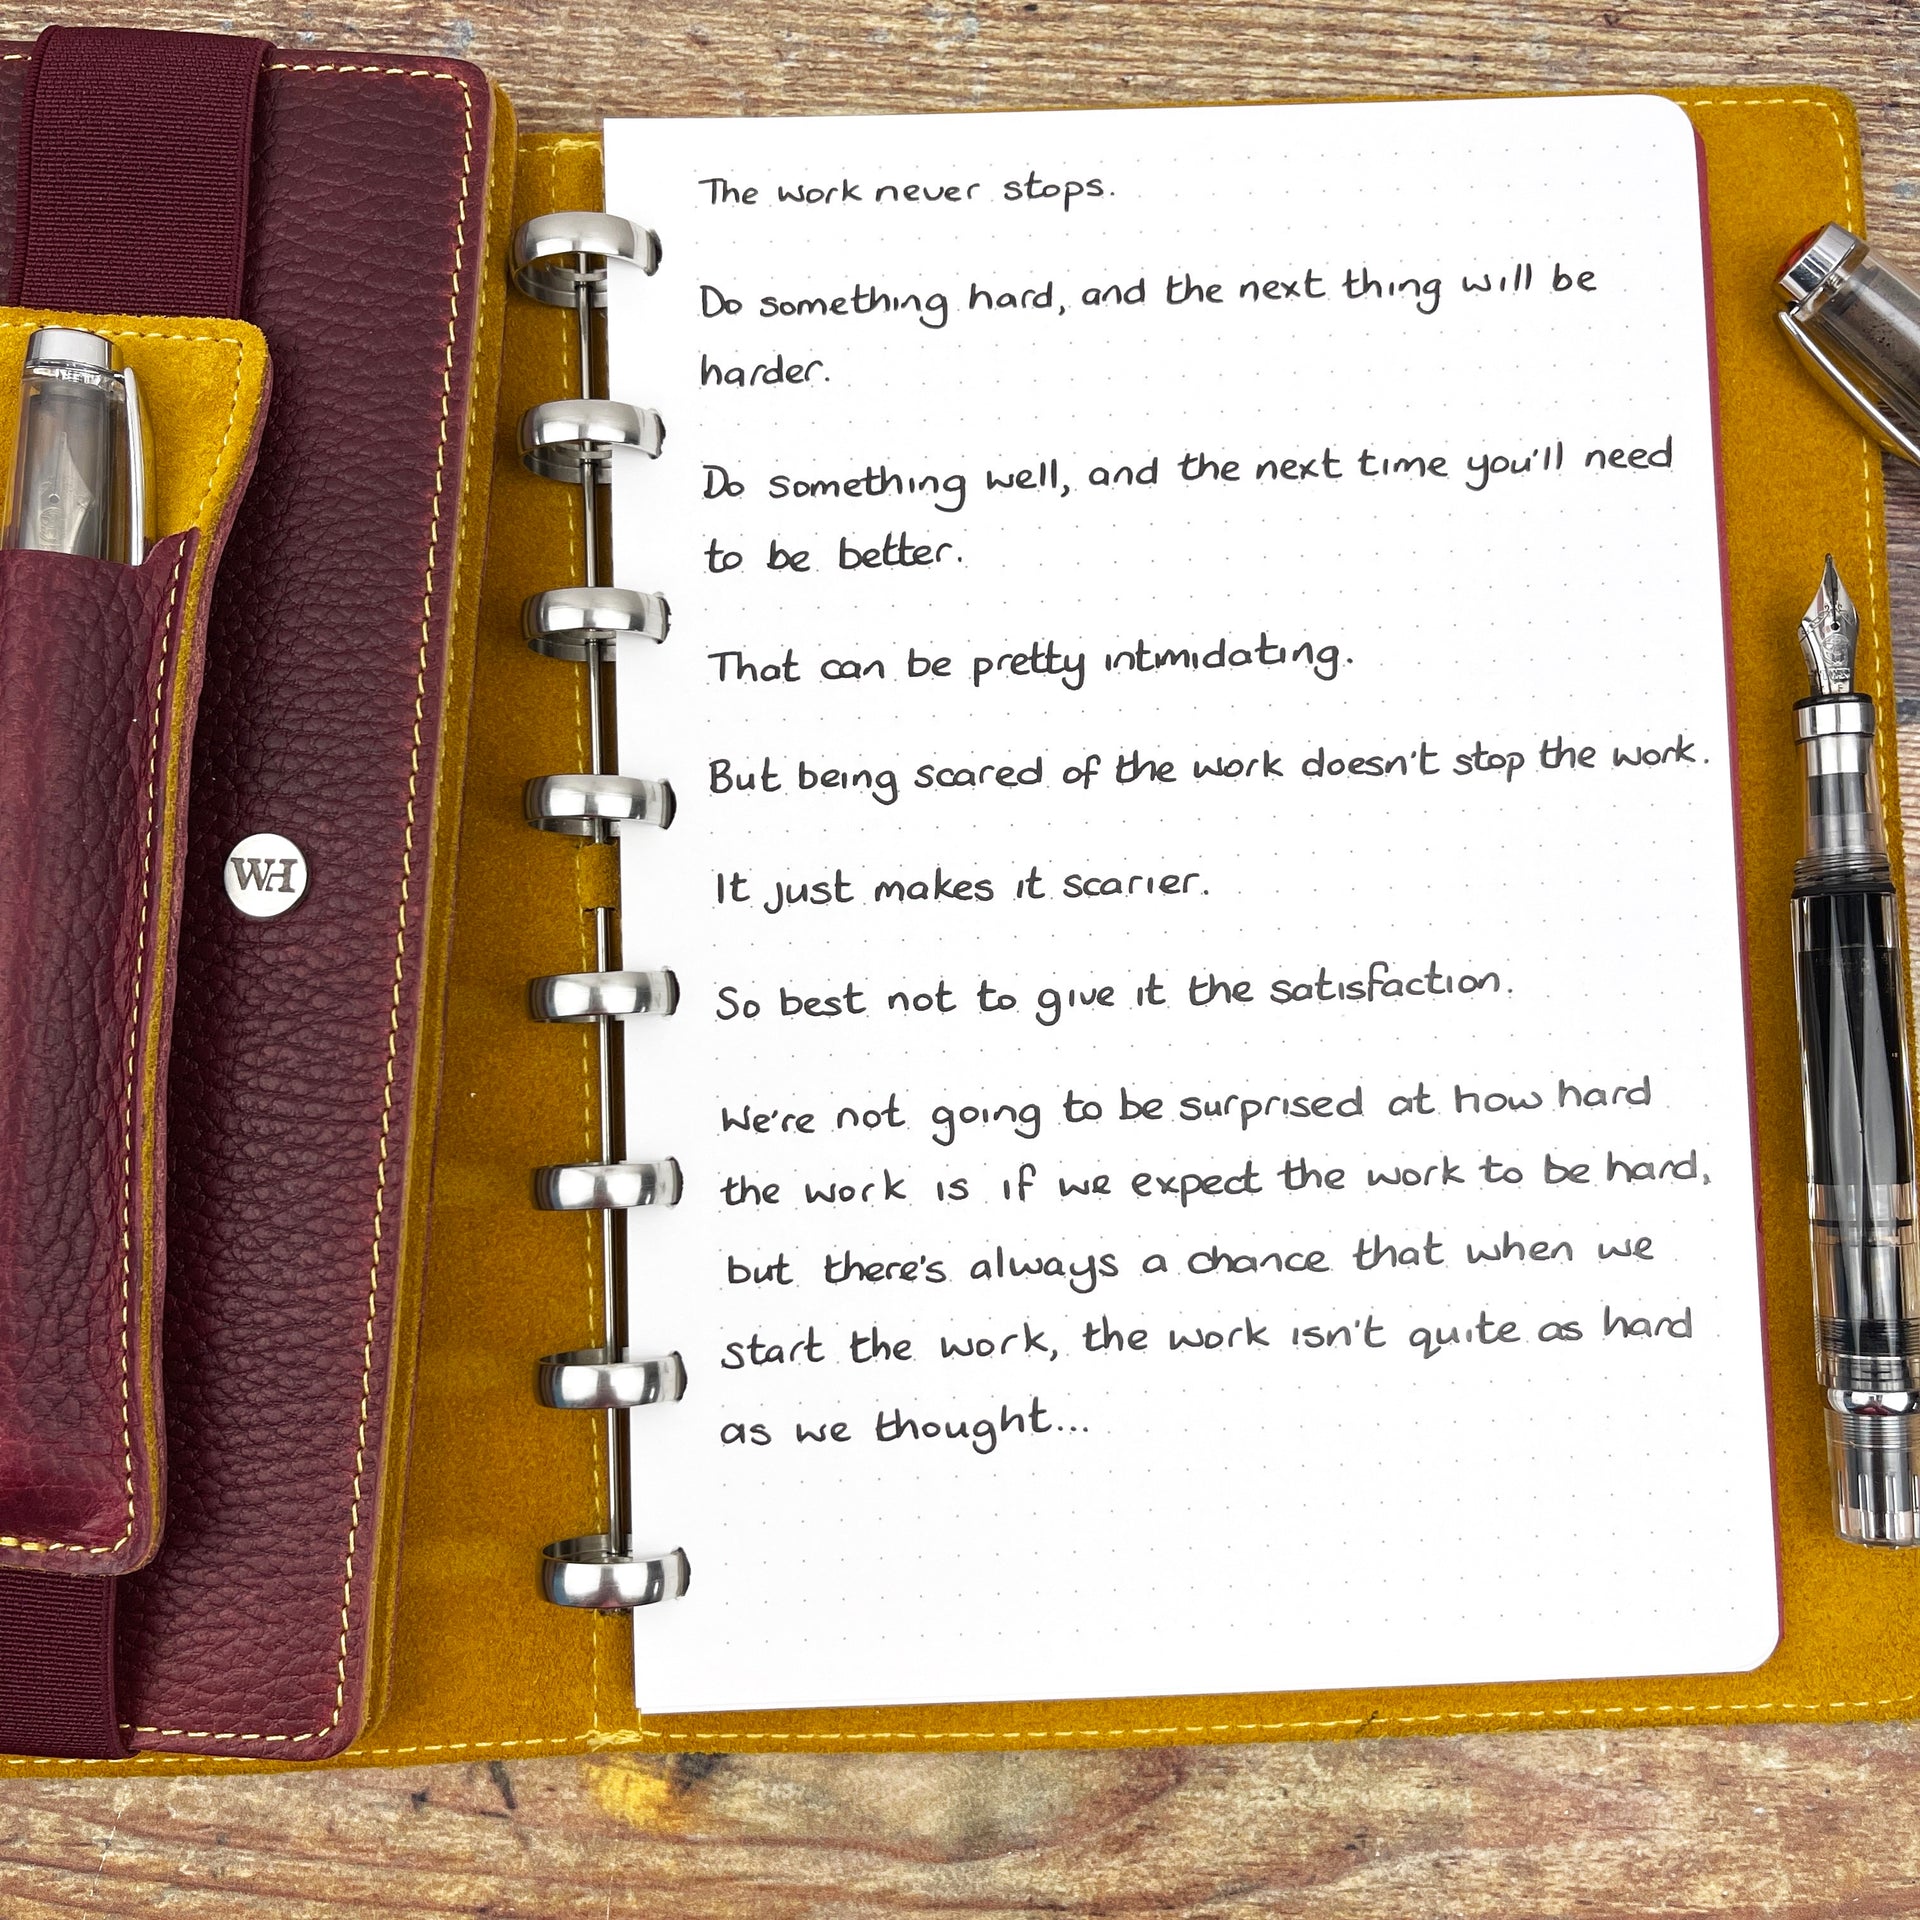 The work never stops.
Do something hard, and the next thing will be
harder.
Do something well, and the next time you'll need
to be better.
That can be pretty intimidating.
But being scared of the work doesn't stop the work.
It just makes it scarier.
So best not to give it the satisfaction.
We're not going to be surprised at how hard
the work is if we expect the work to be hard,
but there's always a chance that when we
start the work, the work isn't quite as hard
as we thought...
WH